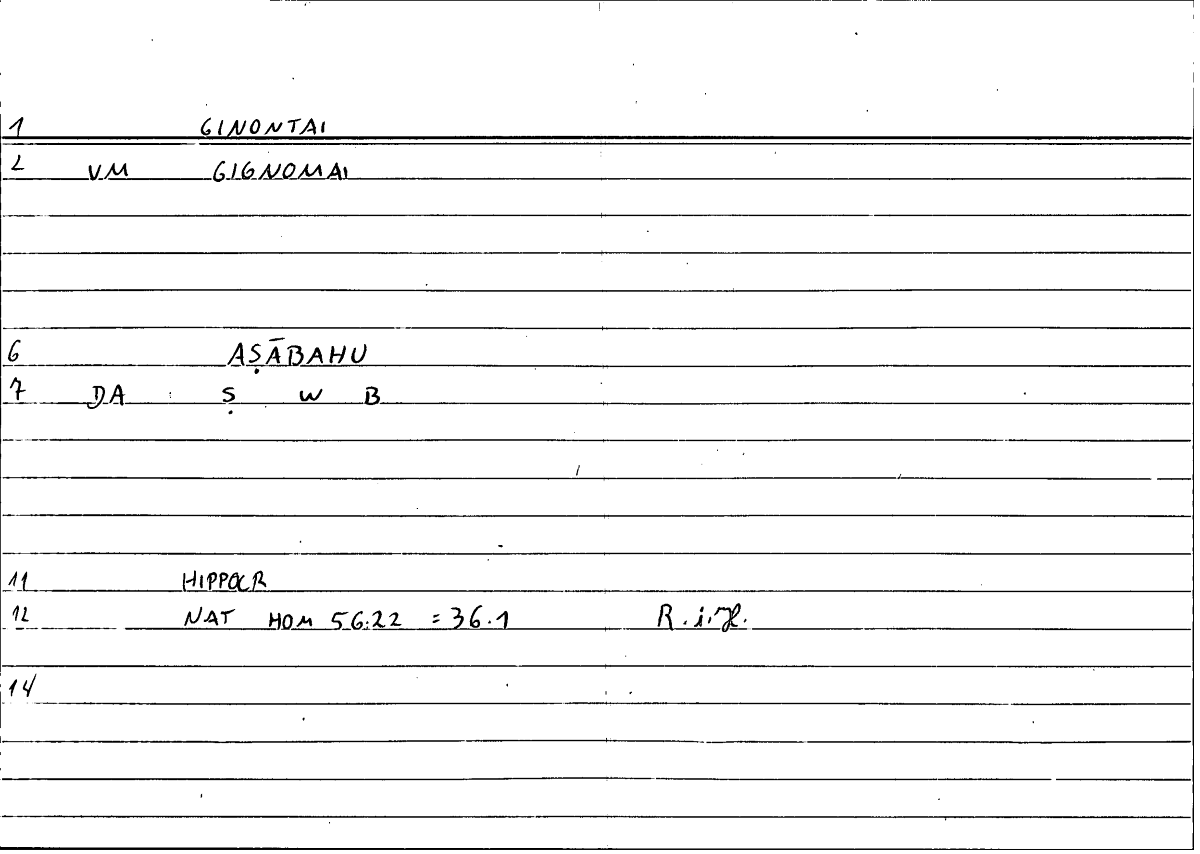 1 GINONTAI
2 VM GIGNOMAI
6 AṢĀBAHU
7 DA : Ṣ W B
11 HIPPOCR
12 NAT HOM 56:22 = 36.1 R.i.H.
14